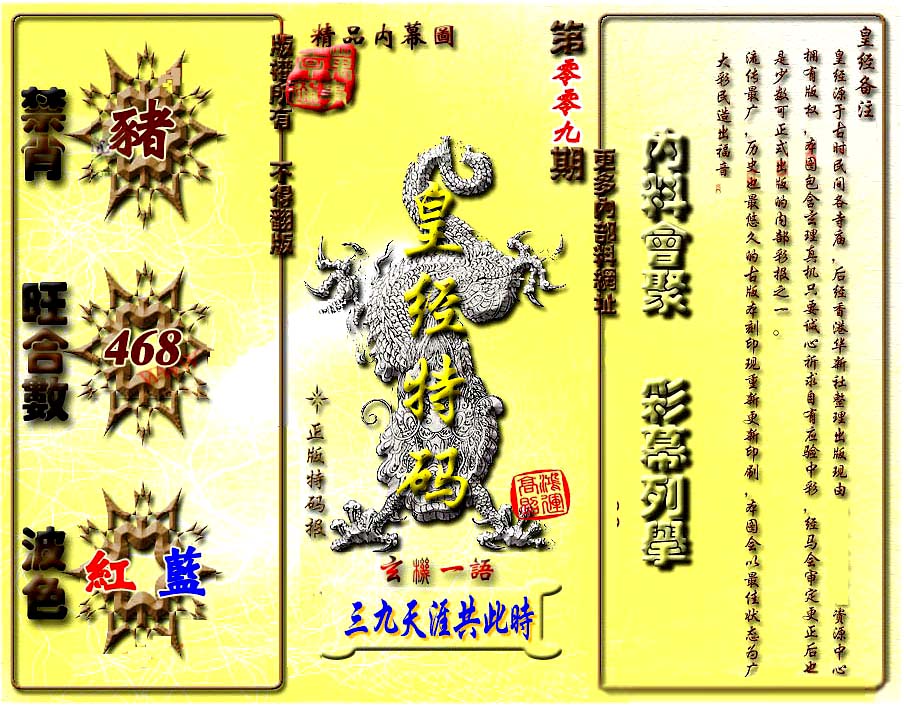 禁肖
豬
旺合數
468
波色
紅 藍
版權所有 不得翻版
精品内幕圖
皇经特码
正版特码报
鴻運高照
玄機一語
三九天涯共此時
第零零九期
更多内部料網址
内料會聚 彩幕列舉
皇经备注
皇经源于古时民间各寺庙，后经香港华新社整理出版现由 資源中心
拥有版权，本图包含玄理真机只要诚心祈求自有应验中彩，经马会审定更正后也
是少数可正式出版的内部彩报之一。
流传最广，历史也最悠久的古版本刻印现重新更新印刷，本图会以最佳状态为广
大彩民造出福音